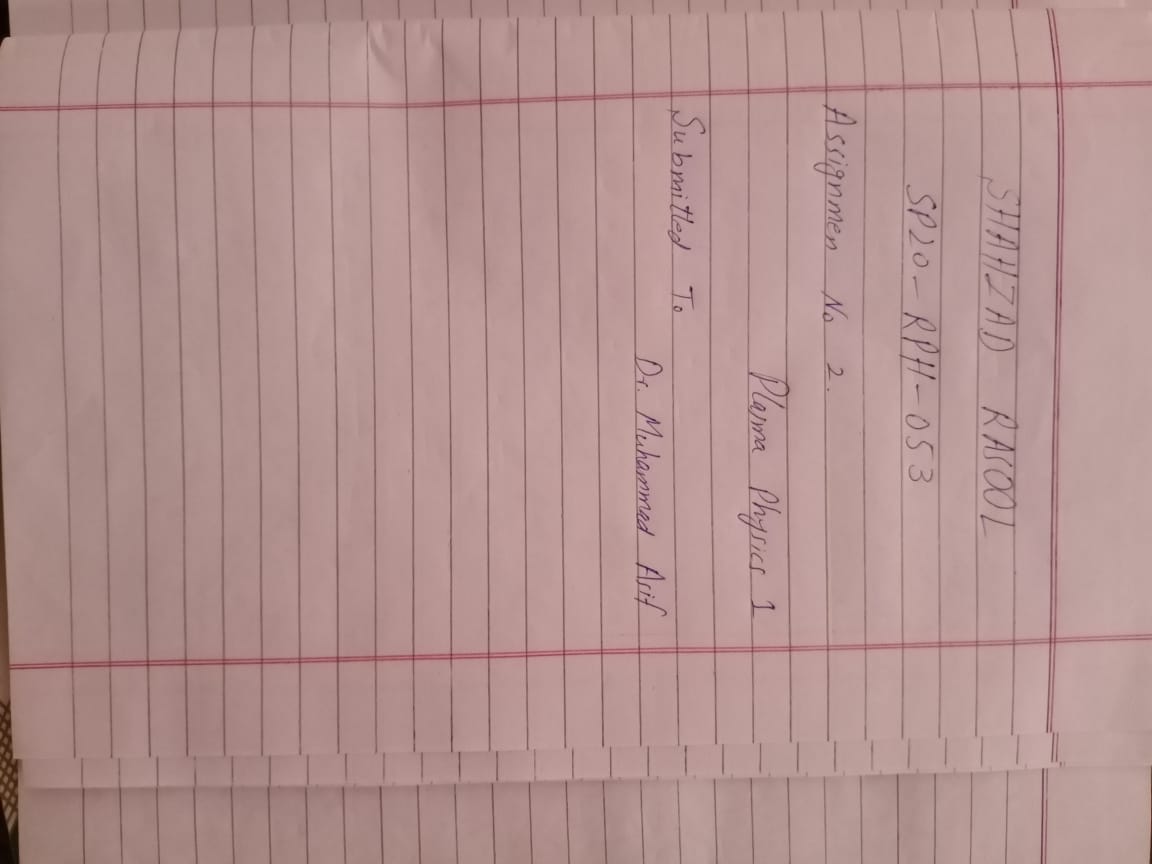 SHAHZAD RASOOL
SP20-RPH-053
Assignmen No 2.
Plasma Physics 1
Submitted To
Dr. Muhammad Asif